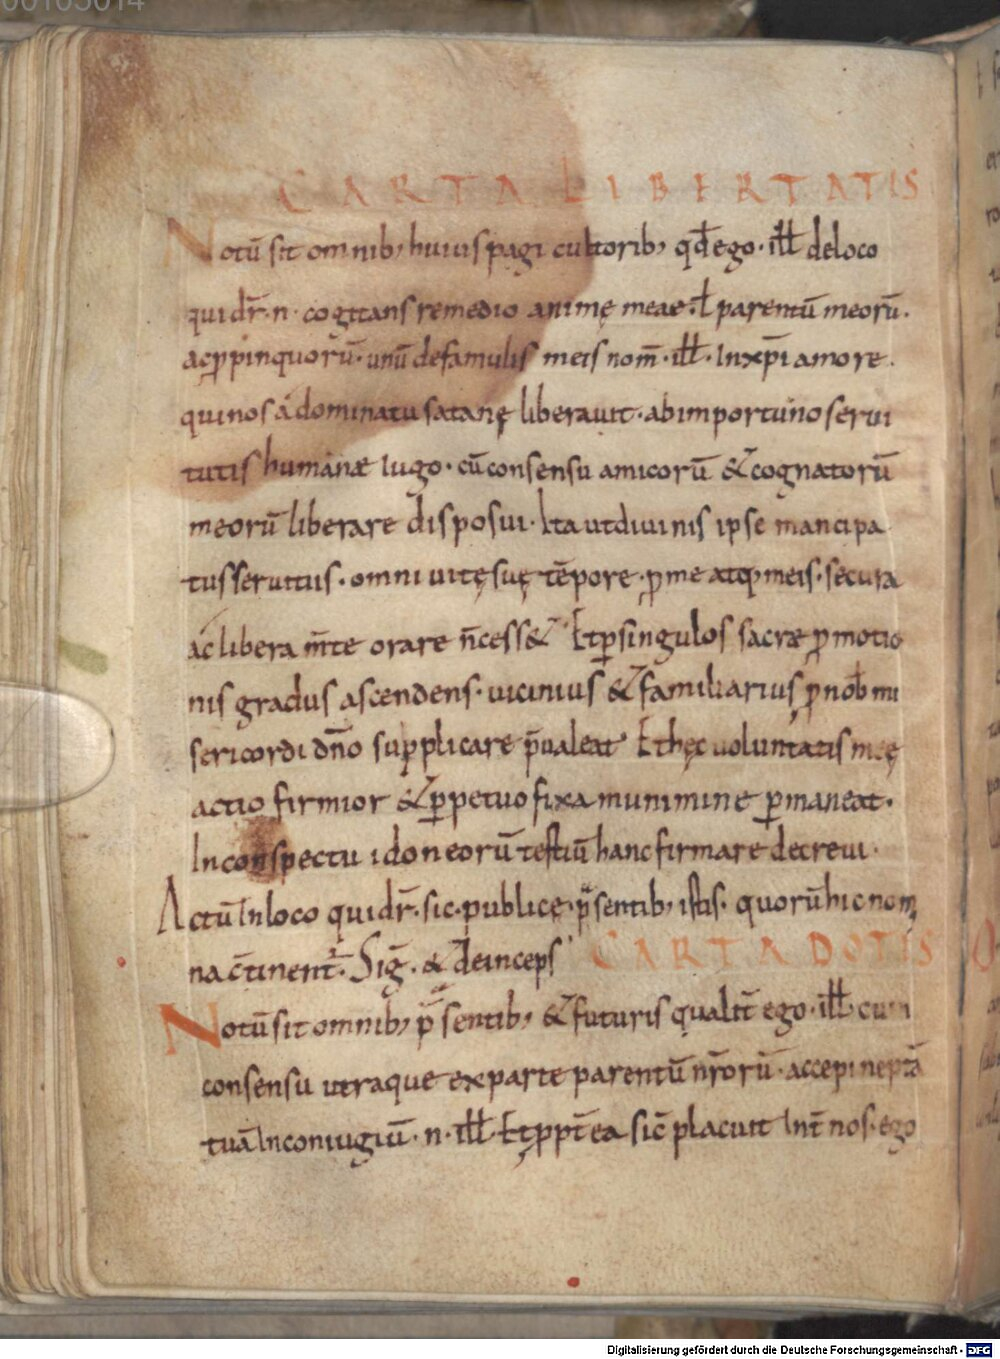 00105014
CARTA LIBERTATIS
Notū sit omnib; huius pagi cultoribꝫ qđ ego · ill̄ de loco
qui dr̄ · n · cogitans remedio animę meae · ł parentū meorū ·
ac ꝓpinquorū · unū de famulis meis nom̄ · ill̄ · In xp̄i amore ·
qui nos a dominatu satanę liberauit · ab importuno serui
tutis humanæ iugo · cū consensu amicorū & cognatorū
meorū liberare disposui · Ita ut diuinis ipse mancipa
tus seruitus · omni uitę suę tēpore · ꝑ me atq; meis · secura
ac libera m̄te orare n̄cess& Et ꝑ singulos sacræ ꝓmotio
nis gradus ascendens · uicinius & familiarius ꝓ nob̄ mi
sericordi dn̄o supplicare p̄ualeat Et hęc uoluntatis meę
actio firmior & ꝑpetuo fixa munimine ꝑmaneat ·
In conspectu idoneorū testiū hanc firmare decreui ·
Actū In loco qui dr̄ · sic · publicę · p̄sentib; istis · quorū hic nom
na c̄tinent̄ · Sig̅ · & deinceps CARTA DOTIS
Notū sit omnib; p̄sentib; & futuris qualit̄ ego · ill̄ cum
consensu utraque ex parte parentū nr̄orū · accepi neptā
tuā In coniugiū · n · ill̄ · Et ꝓpt̄ea sic̄ placuit Int̄ nos · ego
Digitalisierung gefördert durch die Deutsche Forschungsgemeinschaft - DFG